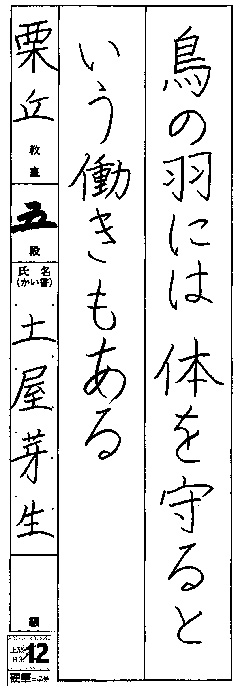 鳥の羽には体を守ると
いう働きもある
栗丘教室
五段
氏名
(かい書)
土屋芽生
級
12